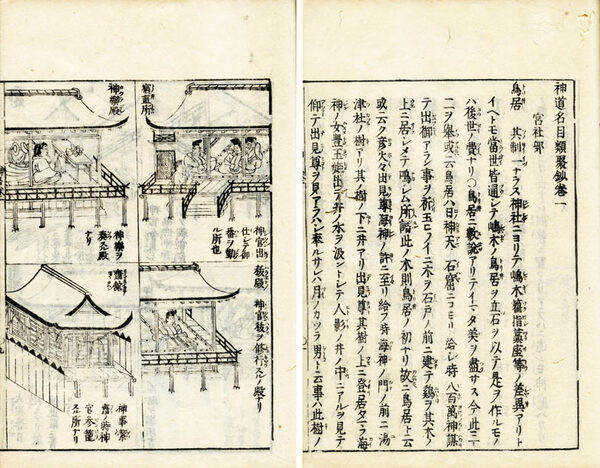 神道名目類聚鈔巻一
宮社部
鳥居 其制一ナラス神社ニヨリテ嶋木籠指藁座等ノ差異アリト
イヘトモ當世皆通シテ嶋木ノ鳥居ヲ立石ヲ以テ是ヲ作ルモノ
ハ後世ノ事ナリ〇鳥居ニ數説アリテイマタ美ヲ盡サス今此ニ一
二ヲ舉或云鳥居ハ日神天ノ石窟ニコモリ給シ時八百萬神謀
テ出御アラン事ヲ祈玉ヒ木ヲ石戸ノ前ニ建テ鷄ヲ其木ノ
上ニ居シメテ鳴シム所謂此ノ木則鳥居ノ初ナリ故ニ鳥居ト云
或云ク彦火々出見尊海神ノ許ニ至リ給フ時海神ノ門ノ前ニ湯
津杜ノ樹アリ其ノ樹ノ下ニ井アリ出見尊其樹ノ上ニ登居タマフ海
神ノ女豊玉姫出テ井ノ水ヲ汲ントシテ人影ノ井ノ中ニアルヲ見テ
仰テ出見尊ヲ見アラハシ奉ルサレハ月ノカツラ男ト云事ハ此樹ノ
宿直所
神官出
仕シテ御
番ヲ勤
ル所也
神樂殿
神樂ヲ
奏スル殿
ナリ
祓殿
神官祓ヲ修行スルノ殿ナリ
齋館
神事祭
齋ノ時神
官參籠
スル所ナリ